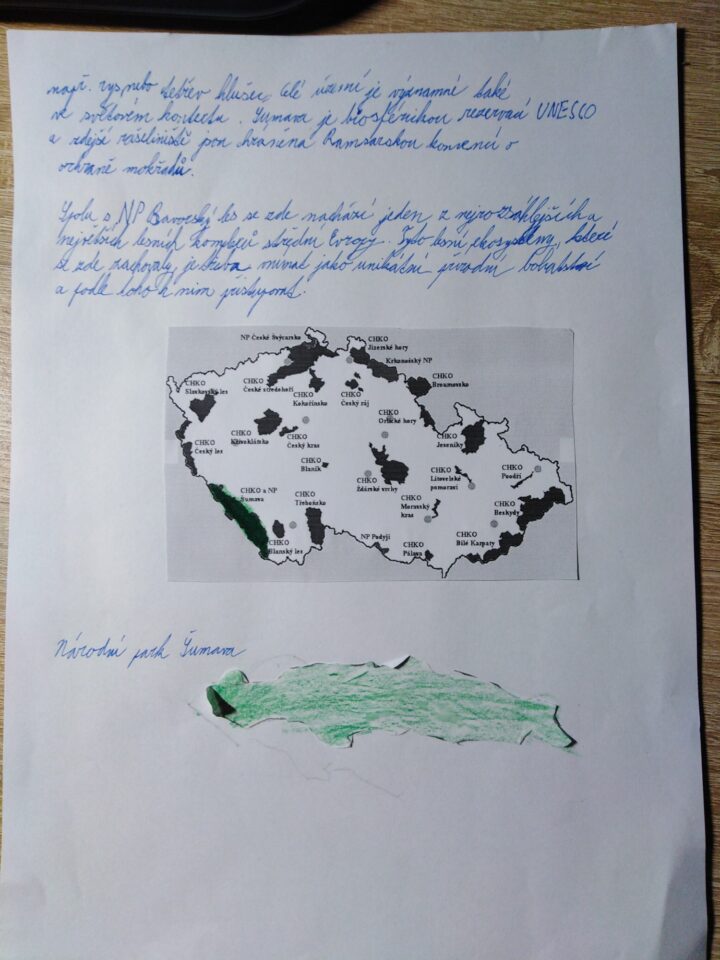 např. rys nebo tetřev hlušec. Celé území je významné také
ve světovém kontextu. Šumava je biosférickou rezervací UNESCO
a zdejší rašeliniště jsou chráněna Ramsarskou konvencí o
ochraně mokřadů.
Spolu s NP Bavorský les se zde nachází jeden z nejrozsáhlejších a
největších lesních komplexů střední Evropy. Tyto lesní ekosystémy, které
se zde zachovaly je třeba vnímat jako unikátní přírodní bohatství
a podle toho k nim přistupovat.
NP České Švýcarsko
CHKO
Jizerské hory
Krkonošský NP
CHKO
Slavkovský les
CHKO
České středohoří
CHKO
Kokořínsko
CHKO
Český ráj
CHKO
Broumovsko
CHKO
Český les
CHKO
Křivoklátsko
CHKO
Český kras
CHKO
Orlické hory
CHKO
Jeseníky
CHKO
Blaník
CHKO
Žďárské vrchy
CHKO
Litovelské
pomoraví
CHKO
Poodří
CHKO a NP
Šumava
CHKO
Třeboňsko
CHKO
Moravský
kras
CHKO
Beskydy
CHKO
Blanský les
NP Podyjí
CHKO
Pálava
CHKO
Bílé Karpaty
Národní park Šumava